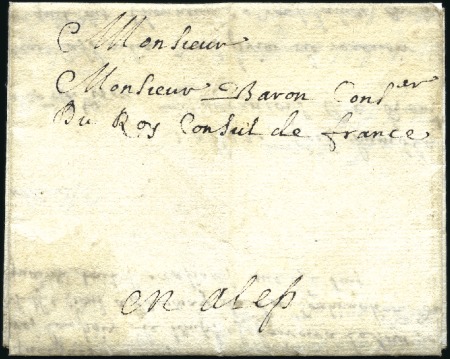 Monsieur
Monsieur Baron Conser
Du Roy Consul de france
en alep